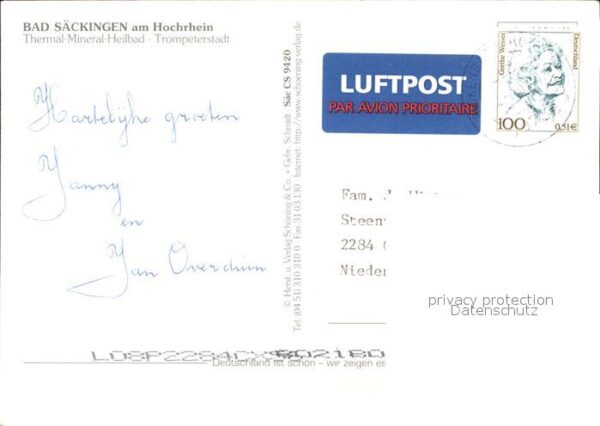 BAD SÄCKINGEN am Hochrhein
Thermal-Mineral-Heilbad · Trompeterstadt
Hartelijke groeten
Janny
en
Jan Overduin
© Herst. u. Verlag Schöning & Co. + Gebr. Schmidt · Säc CS 9420
Tel. (04 51) 310 310 0 · Fax 31 03 130 · Internet: http://www.schoening-verlag.de
LUFTPOST
PAR AVION PRIORITAIRE
Grethe Weiser
Deutschland
100
0,51€
Fam.
Steen
2284
Nieder
privacy protection
Datenschutz
Deutschland ist schön – wir zeigen es